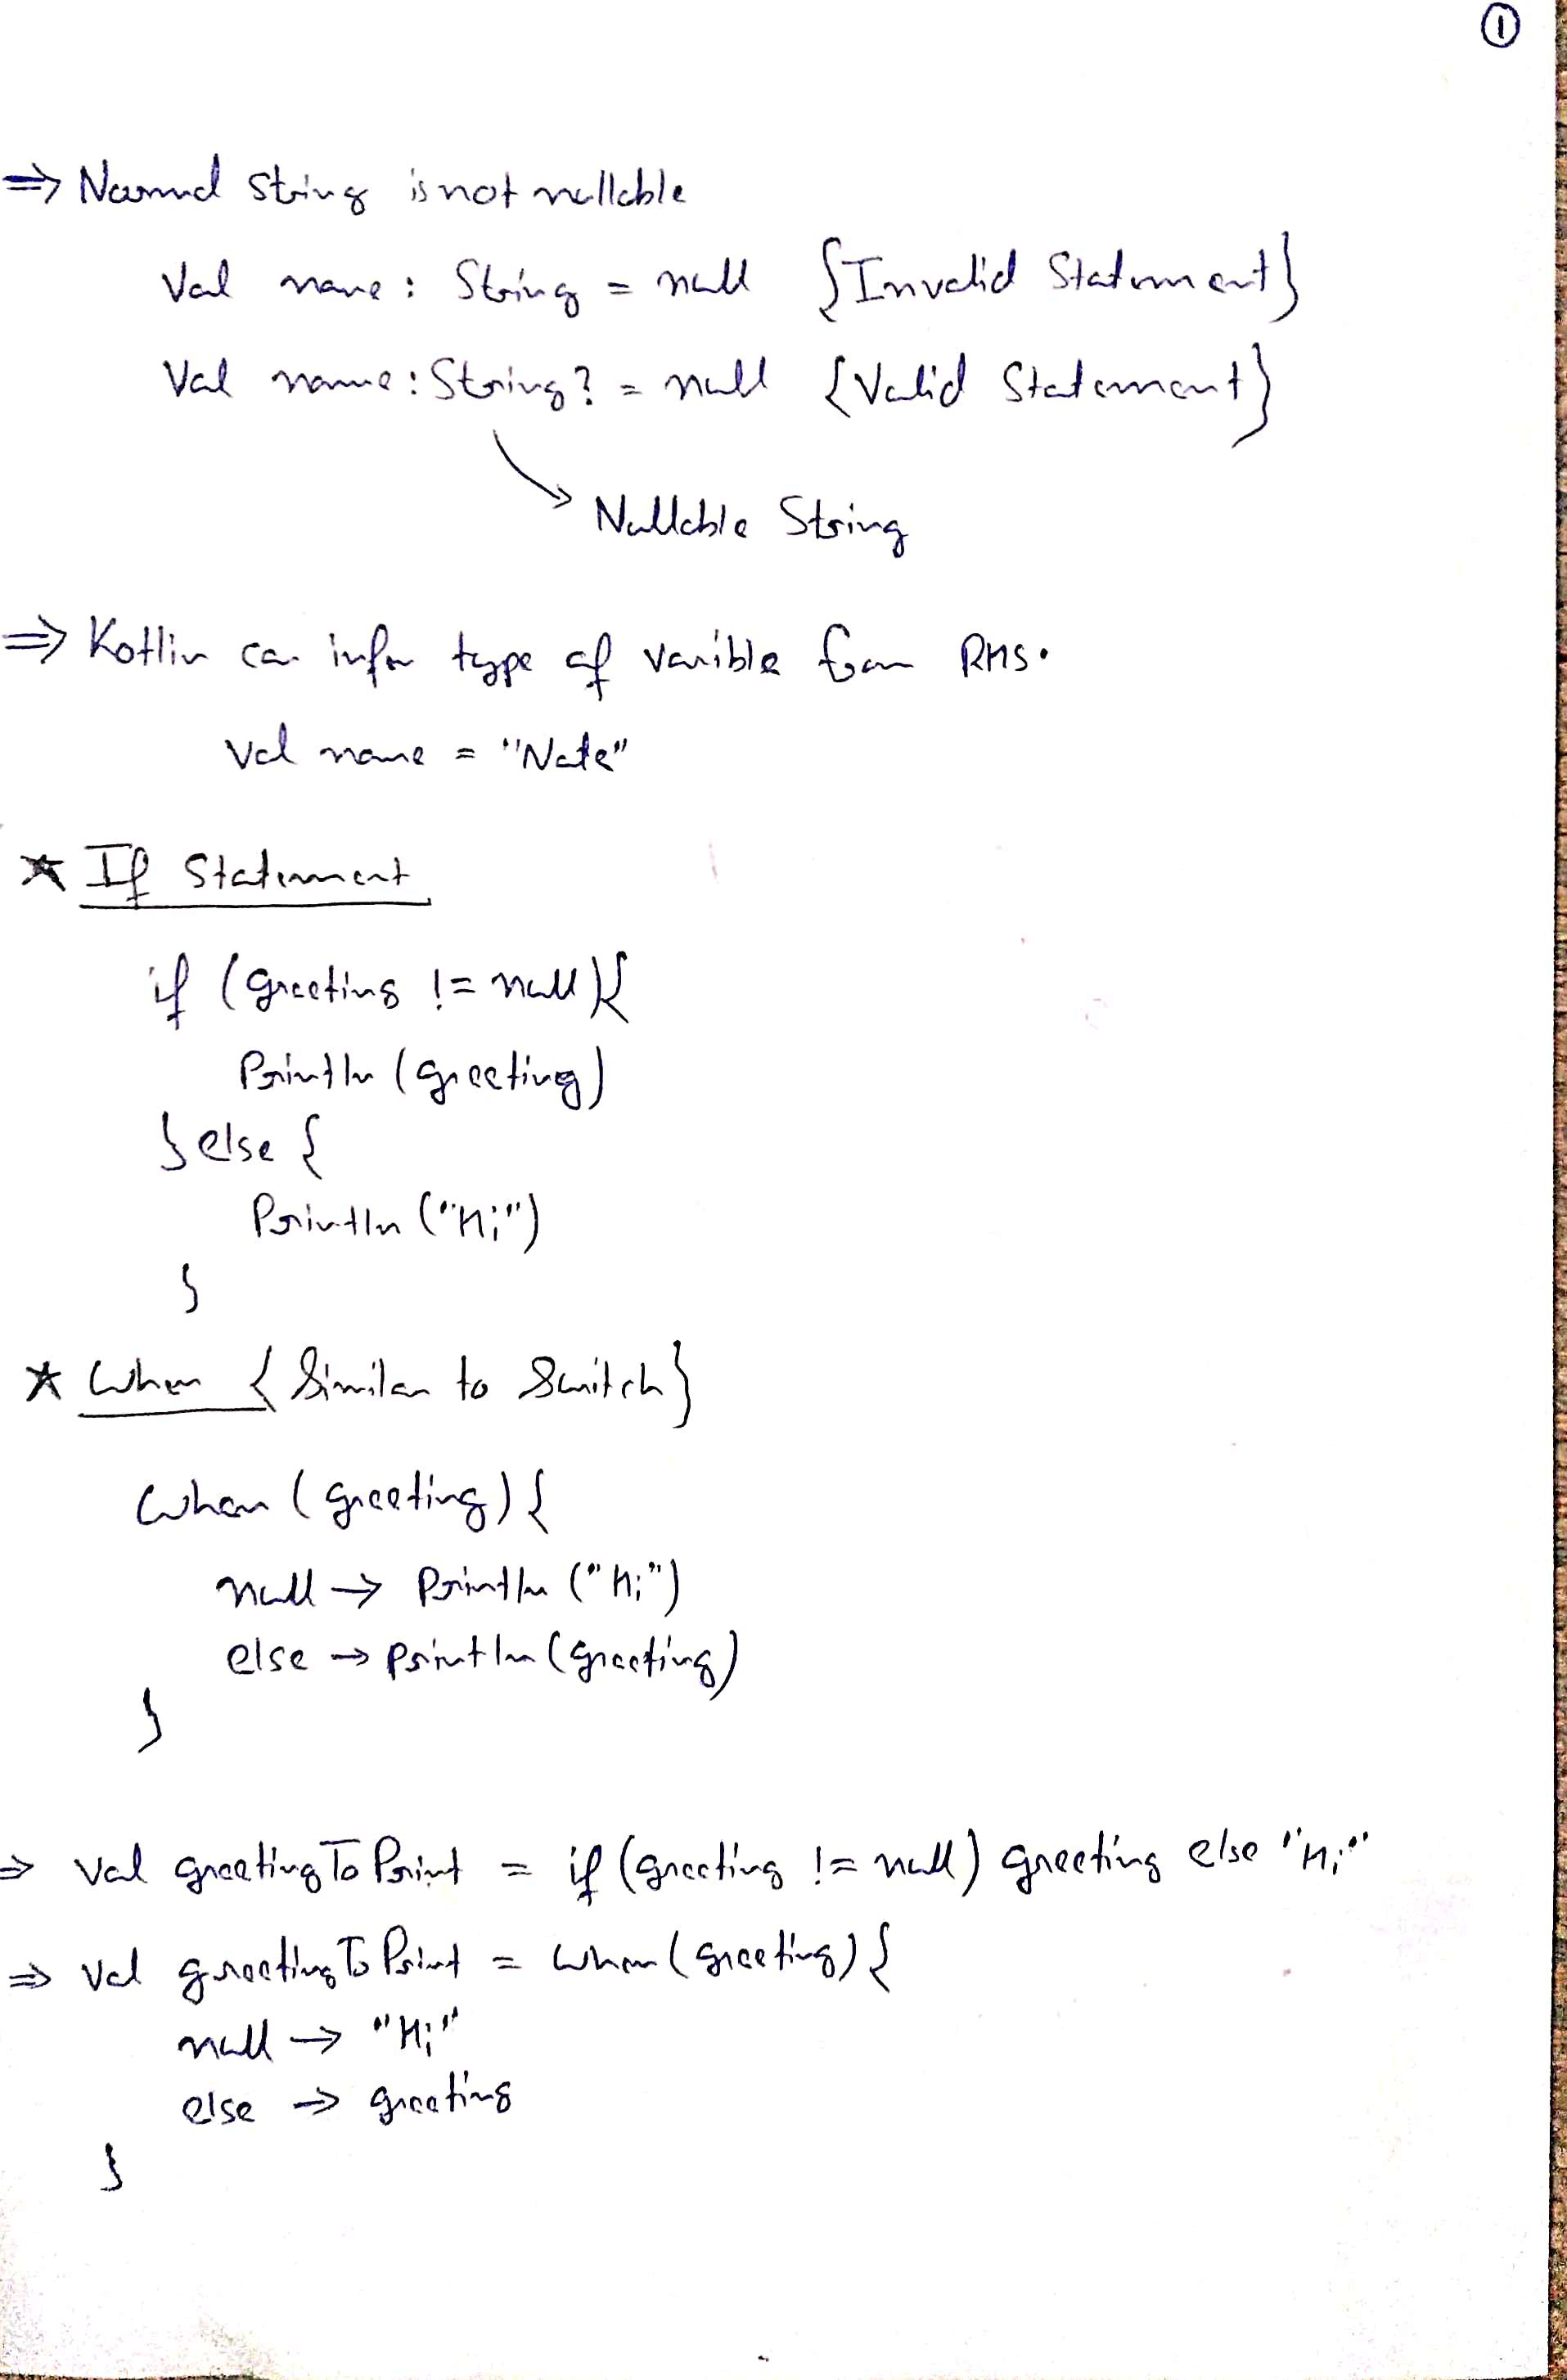 ①
⇒ Normal string is not nullable
Val name : String = null {Invalid Statement}
Val name : String? = null {Valid Statement}
Nullable String
⇒ Kotlin can infer type of varible from RHS.
Val name = "Nate"
* If Statement
if (greeting != null){
Println (greeting)
} else {
Println ("Hi")
}
* When { Similar to Switch}
When (greeting) {
null → Println ("hi")
else → println (greeting)
}
⇒ val greetingToPrint = if (greeting != null) greeting else "Hi"
⇒ val greetingToPrint = when (greeting) {
null → "Hi"
else → greeting
}